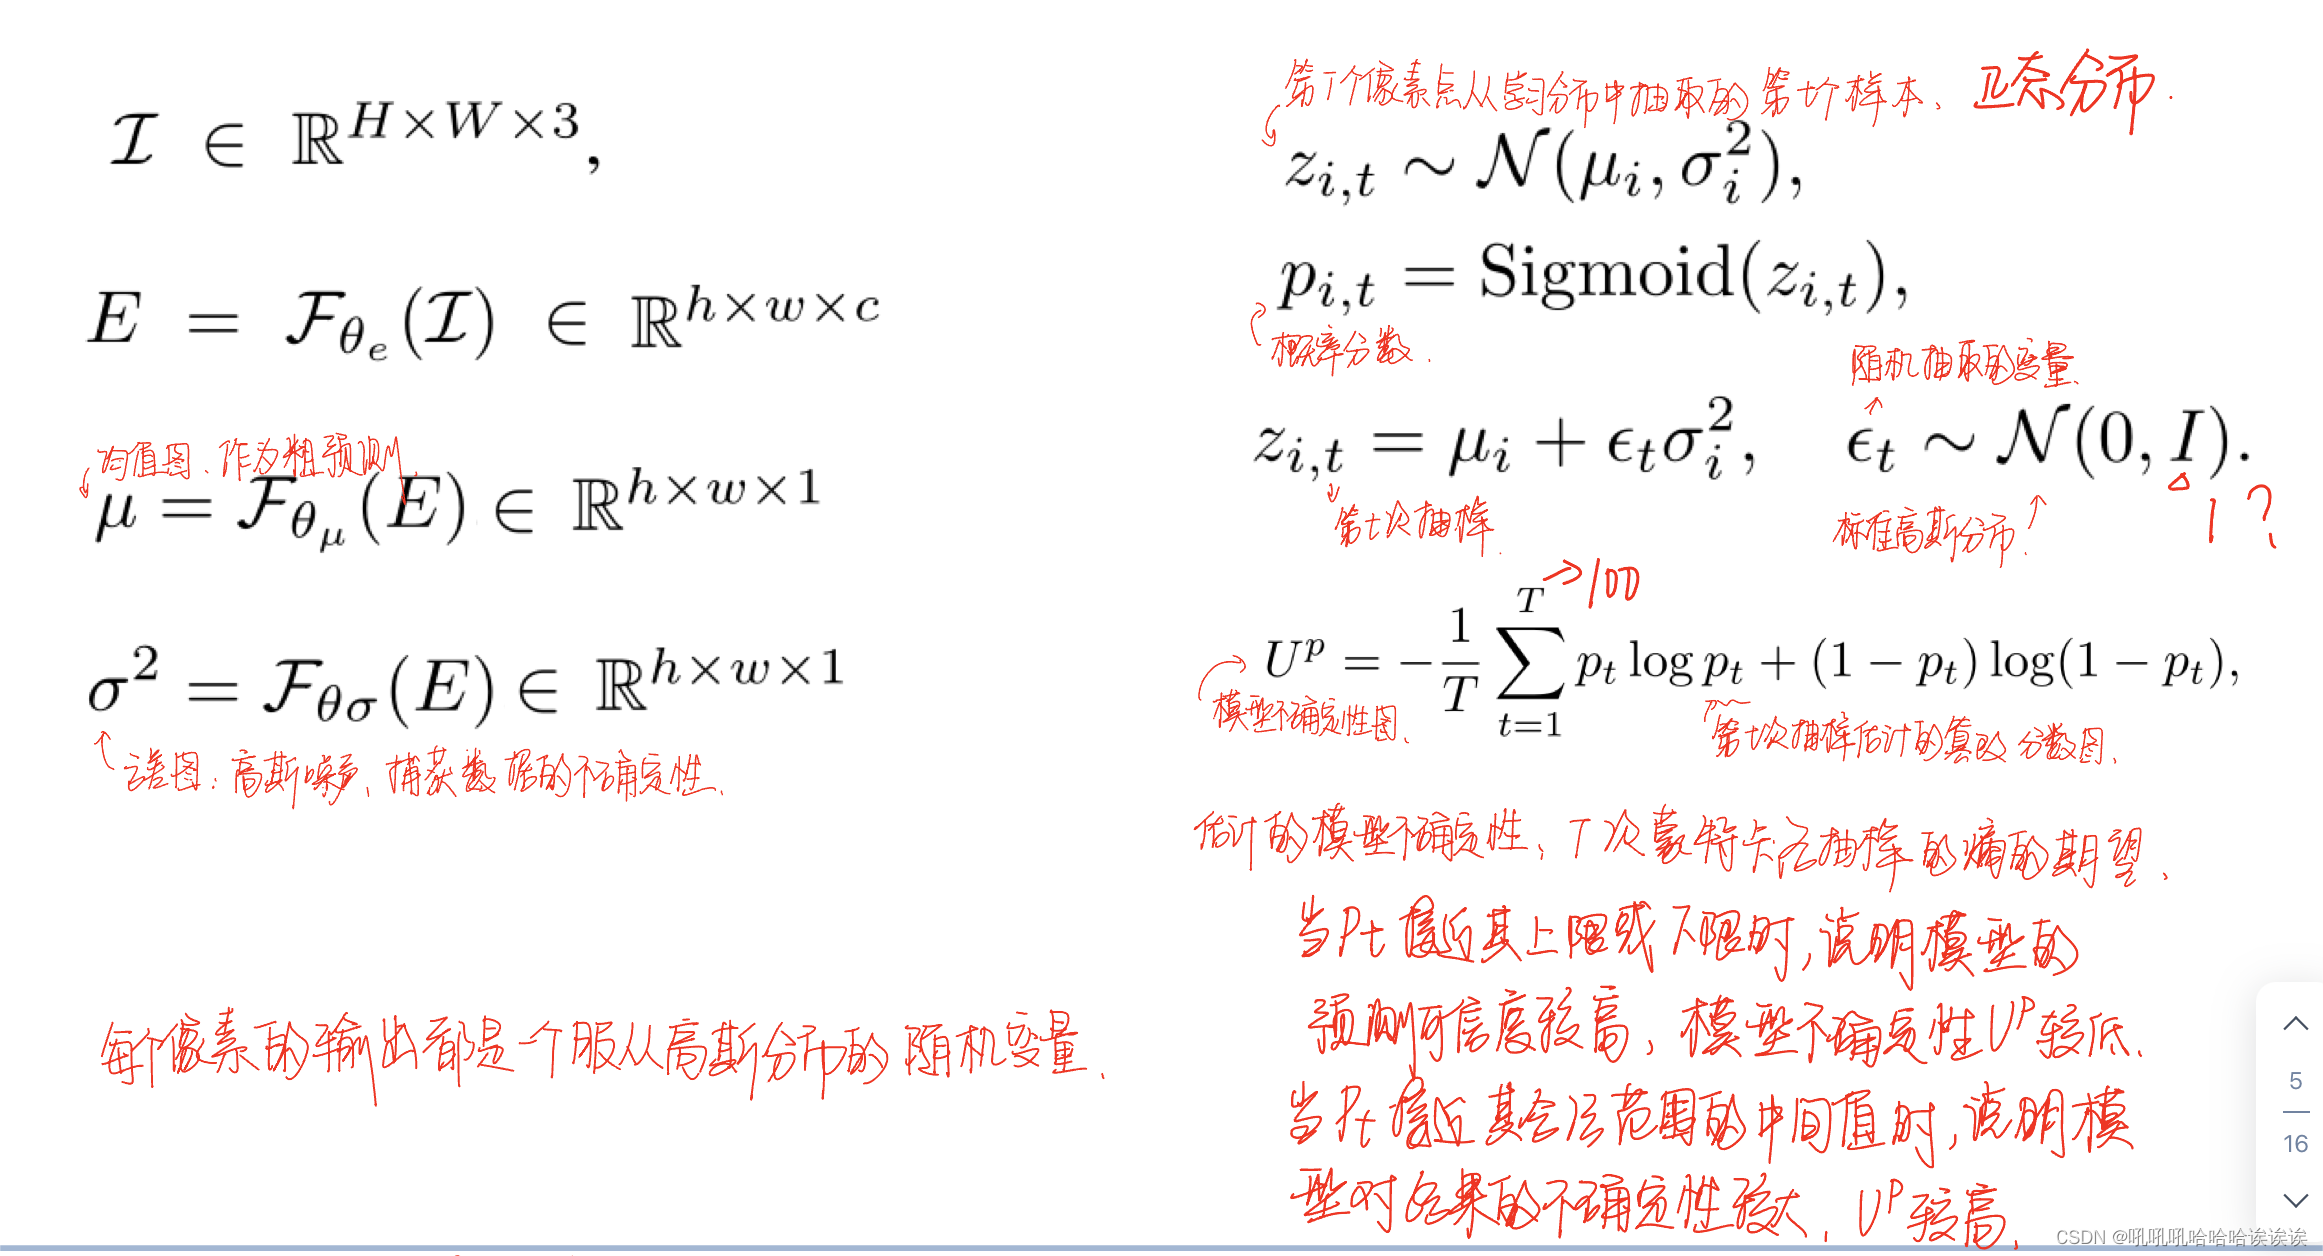 I ∈ ℝ^{H×W×3},
E = F_{θ_e}(I) ∈ ℝ^{h×w×c}
均值图、作为粗预测
μ = F_{θ_μ}(E) ∈ ℝ^{h×w×1}
σ² = F_{θσ}(E) ∈ ℝ^{h×w×1}
误差图:高斯噪声、捕获数据的不确定性.
每个像素的输出都是一个服从高斯分布的随机变量.
第i个像素点从学习分布中抽取的第t个样本、正态分布.
z_{i,t} ∼ N(μ_i, σ_i²),
p_{i,t} = Sigmoid(z_{i,t}),
概率分数.
随机抽取的变量、
z_{i,t} = μ_i + ϵ_t σ_i², ϵ_t ∼ N(0, I).
第t次抽样. 标准高斯分布. 1?
→100
U^p = −\frac{1}{T} ∑_{t=1}^{T} p_t log p_t + (1 − p_t) log(1 − p_t),
模型不确定性图. 第t次抽样估计的篡改分数图.
估计的模型不确定性、T次蒙特卡洛抽样的熵的期望、
当Pt接近其上限或下限时,说明模型的
预测可信度较高,模型不确定性U^P较低.
当Pt接近其合法范围的中间值时,说明模
型对结果的不确定性较大,U^P较高.
5
16
CSDN @吼吼吼哈哈哈诶诶诶